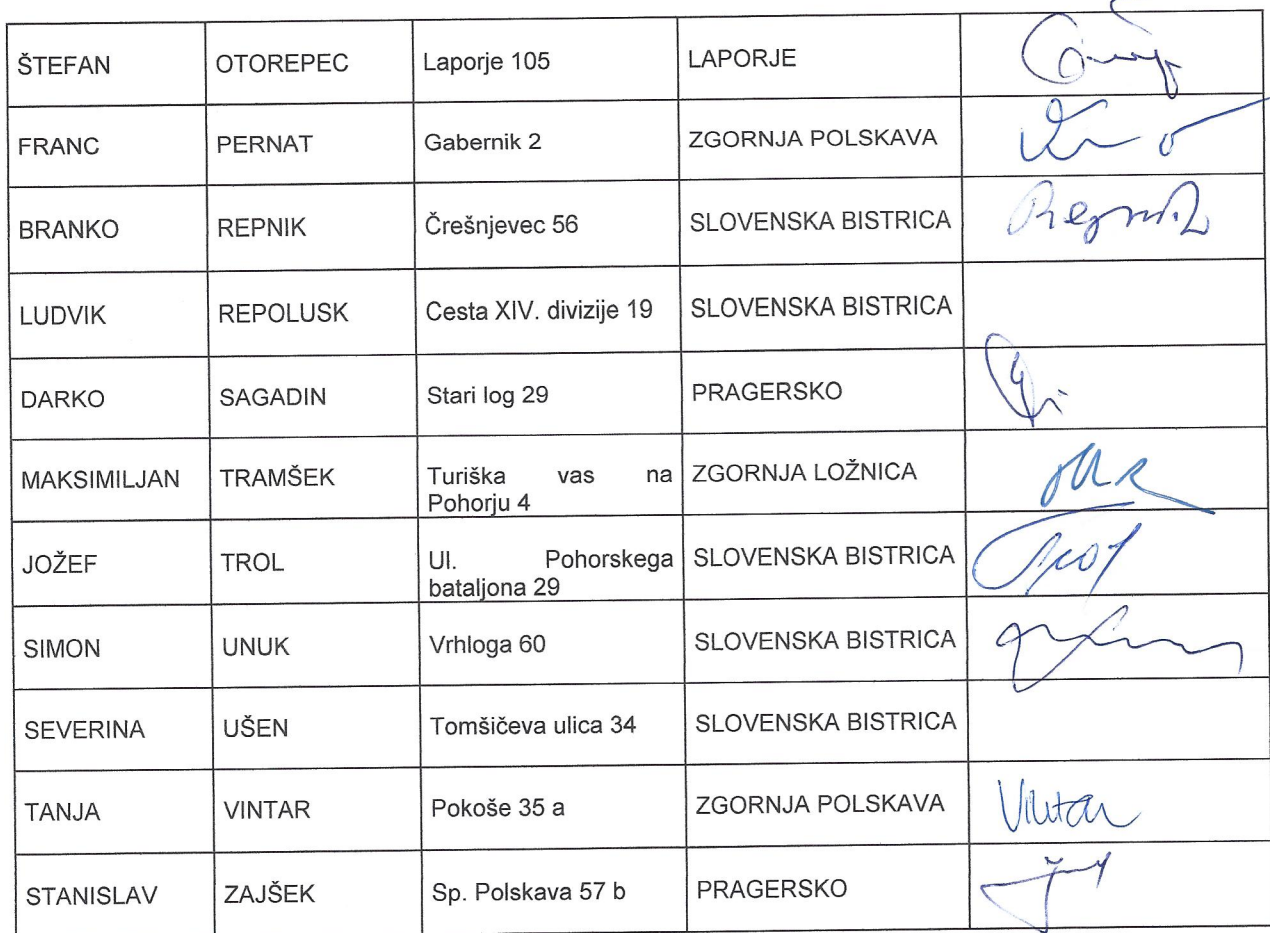 ŠTEFAN OTOREPEC Laporje 105 LAPORJE
FRANC PERNAT Gabernik 2 ZGORNJA POLSKAVA
BRANKO REPNIK Črešnjevec 56 SLOVENSKA BISTRICA Repnik
LUDVIK REPOLUSK Cesta XIV. divizije 19 SLOVENSKA BISTRICA
DARKO SAGADIN Stari log 29 PRAGERSKO
MAKSIMILJAN TRAMŠEK Turiška vas na ZGORNJA LOŽNICA
Pohorju 4
JOŽEF TROL Ul. Pohorskega SLOVENSKA BISTRICA
bataljona 29
SIMON UNUK Vrhloga 60 SLOVENSKA BISTRICA
SEVERINA UŠEN Tomšičeva ulica 34 SLOVENSKA BISTRICA
TANJA VINTAR Pokoše 35 a ZGORNJA POLSKAVA Vintar
STANISLAV ZAJŠEK Sp. Polskava 57 b PRAGERSKO